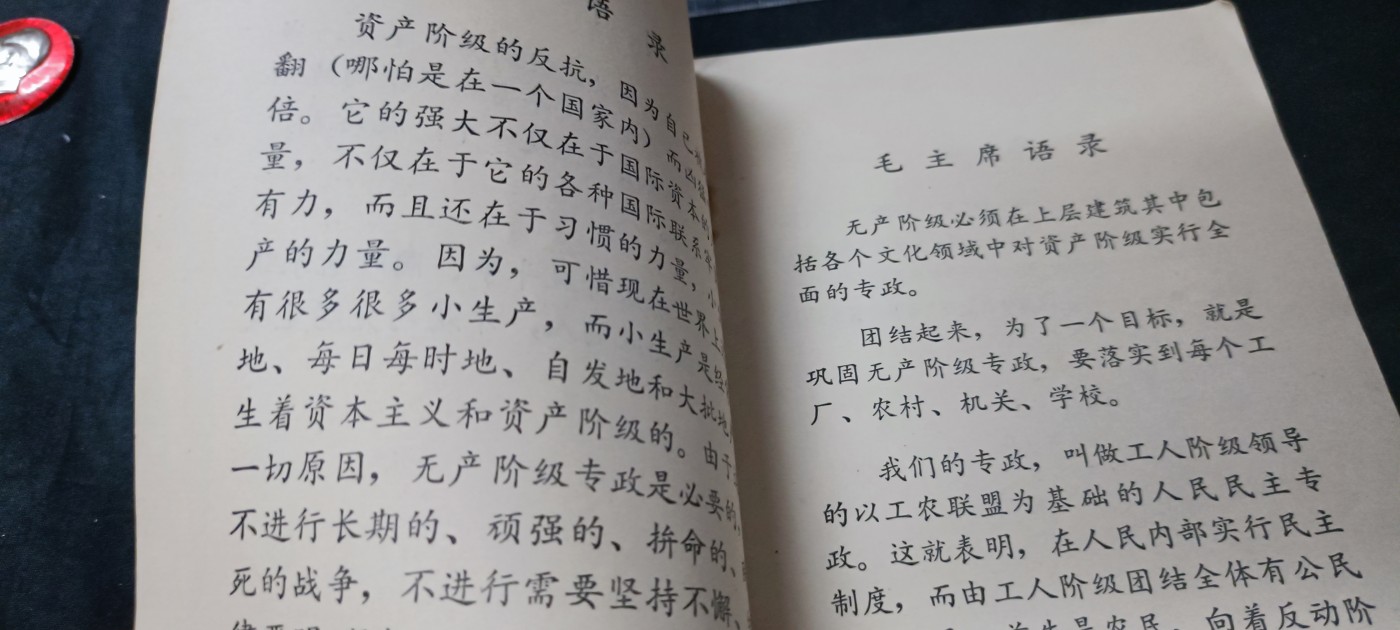 语 录
资产阶级的反抗，因为自己
翻（哪怕是在一个国家内）而凶
倍。它的强大不仅在于国际资本的
量，不仅在于它的各种国际联系
有力，而且还在于习惯的力量，小
产的力量。因为，可惜现在世界上
有很多很多小生产，而小生产是经
地、每日每时地、自发地和大批地
生着资本主义和资产阶级的。由于
一切原因，无产阶级专政是必要的，
不进行长期的、顽强的、拚命的、
死的战争，不进行需要坚持不懈、
毛主席语录
无产阶级必须在上层建筑其中包
括各个文化领域中对资产阶级实行全
面的专政。
团结起来，为了一个目标，就是
巩固无产阶级专政，要落实到每个工
厂、农村、机关、学校。
我们的专政，叫做工人阶级领导
的以工农联盟为基础的人民民主专
政。这就表明，在人民内部实行民主
制度，而由工人阶级团结全体有公民
是农民，向着反动阶